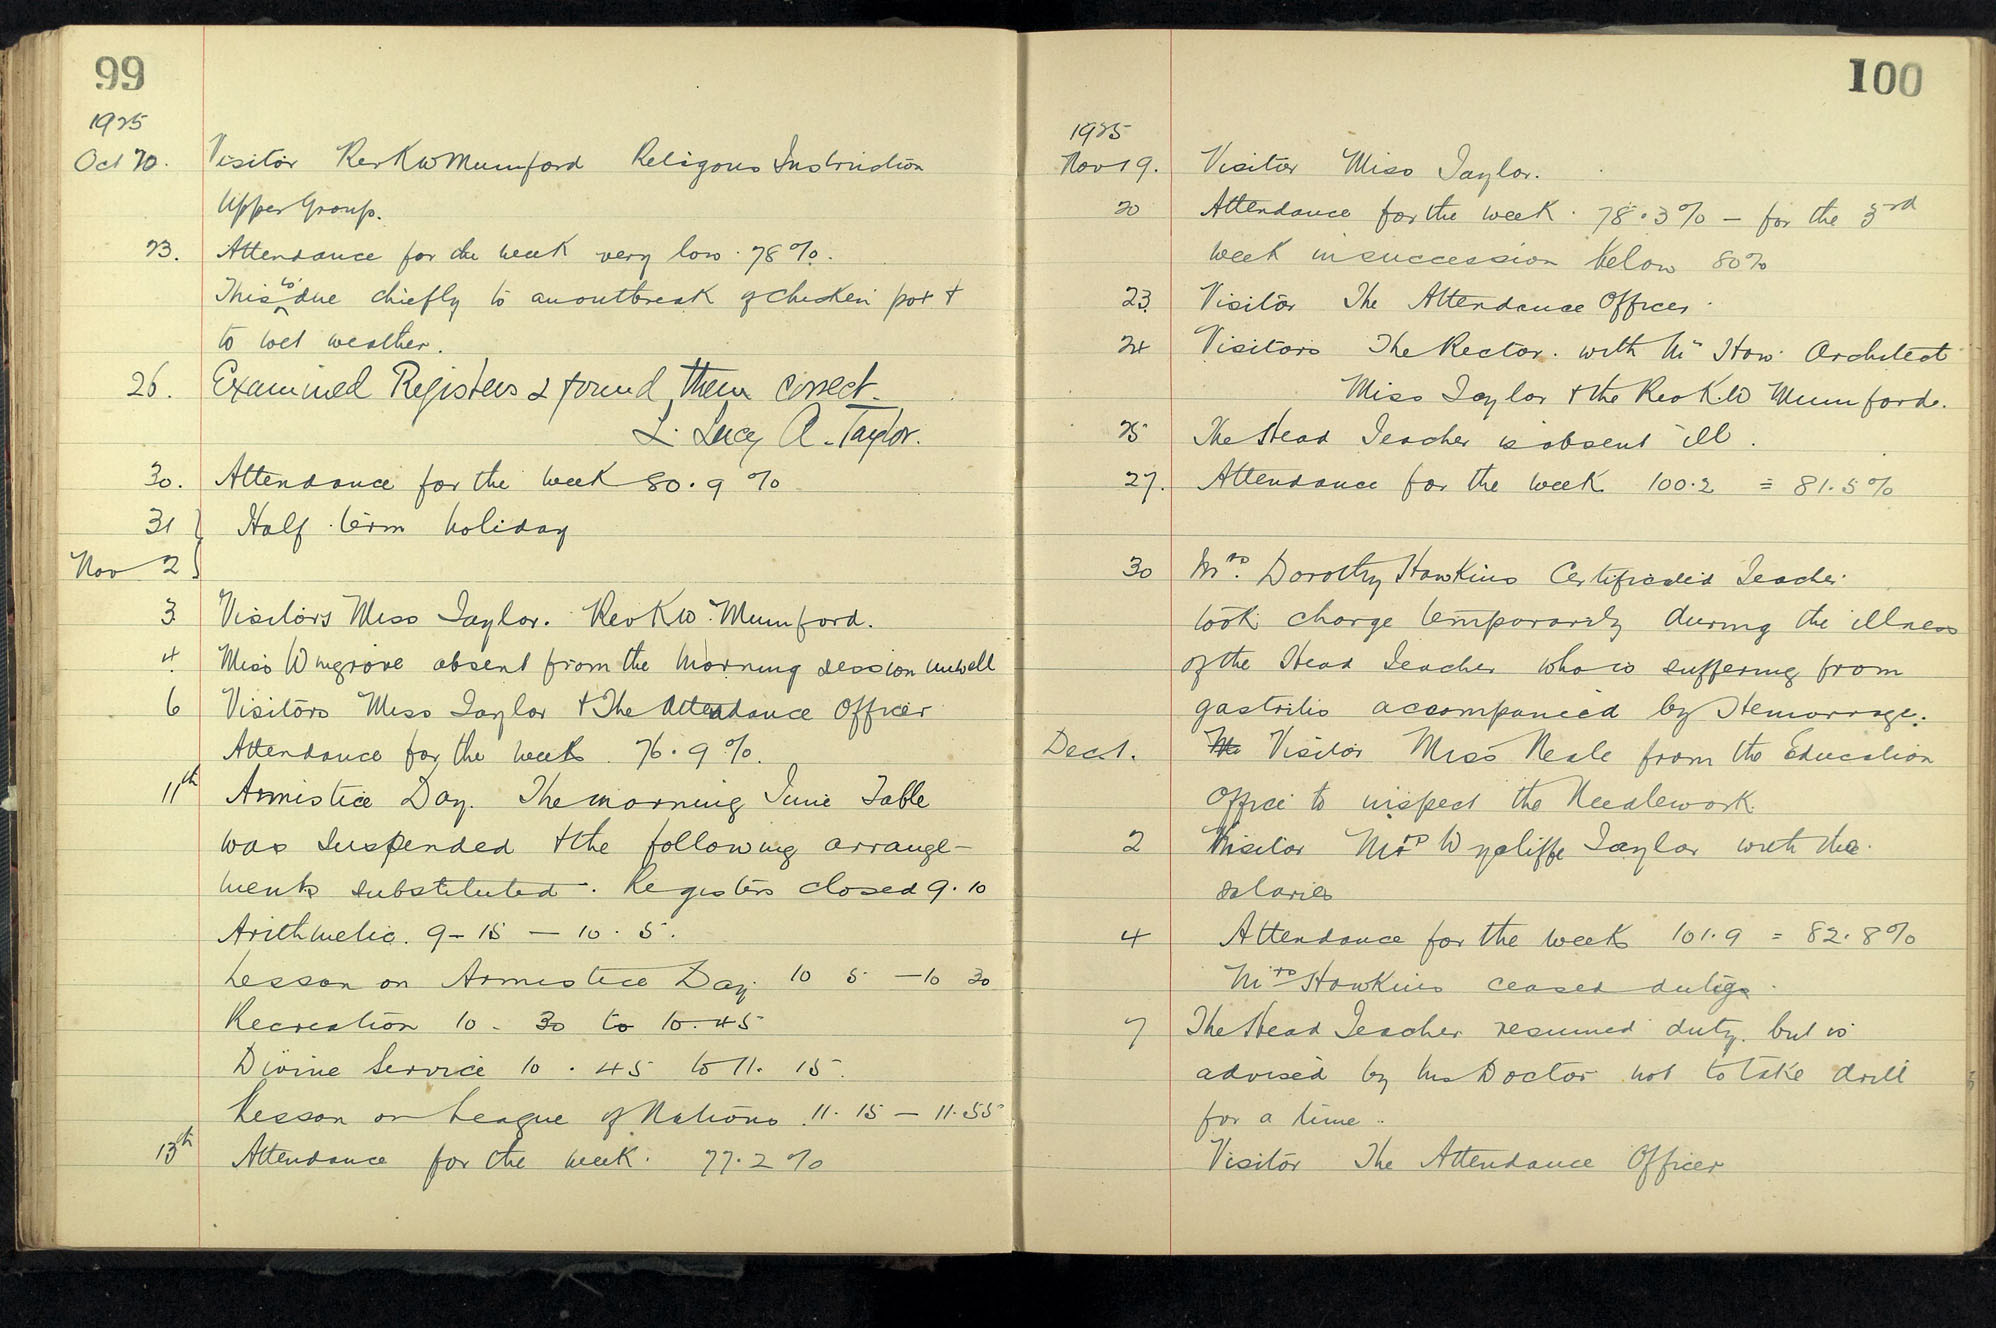 99
1925
Oct 20. Visitor Rev K W Mumford Religous Instruction
Upper Group.
23. Attendance for the week very low. 78%.
This is due chiefly to an outbreak of chicken pox +
to wet weather.
26. Examined Registers & found them correct.
L. Lucy A. Taylor.
30. Attendance for the week 80.9%
31 } Half term holiday
Nov 2 }
3 Visitors Miss Taylor. Rev K W. Mumford.
4. Miss Wingrove absent from the morning session unwell
6 Visitors Miss Taylor + The Attendance Officer
Attendance for the week. 76.9%.
11th Armistice Day. The morning Time Table
was suspended + the following arrange-
ments substituted. Registers closed 9.10
Arithmetic. 9-15 - 10.5.
Lesson on Armistice Day. 10 5 - 10 30
Recreation 10-30 to 10.45
Divine Service 10.45 to 11.15.
Lesson on League of Nations. 11.15 - 11.55
13th Attendance for the week. 77.2%
100
1925
Nov 19. Visitor Miss Taylor.
20 Attendance for the week. 78.3% - for the 3rd
week in succession below 80%
23. Visitor The Attendance Officer.
24 Visitors The Rector. with Mr How. Architect
Miss Taylor + the Rev K.W Mumford.
25 The Head Teacher is absent ill.
27. Attendance for the week 100.2 = 81.5%
30 Mrs. Dorothy Hawkins Certificated Teacher.
took charge temporarily during the illness
of the Head Teacher who is suffering from
gastritis accompanied by Hemorrage.
Dec 1. Visitor Miss Neale from the Education
Office to inspect the Needlework.
2 Visitor Mrs Wycliffe Taylor with the
salaries
4 Attendance for the week 101.9 = 82.8%
Mrs Hawkins ceased duties.
7 The Head Teacher resumed duty. but is
advised by his Doctor not to take drill
for a time.
Visitor The Attendance Officer